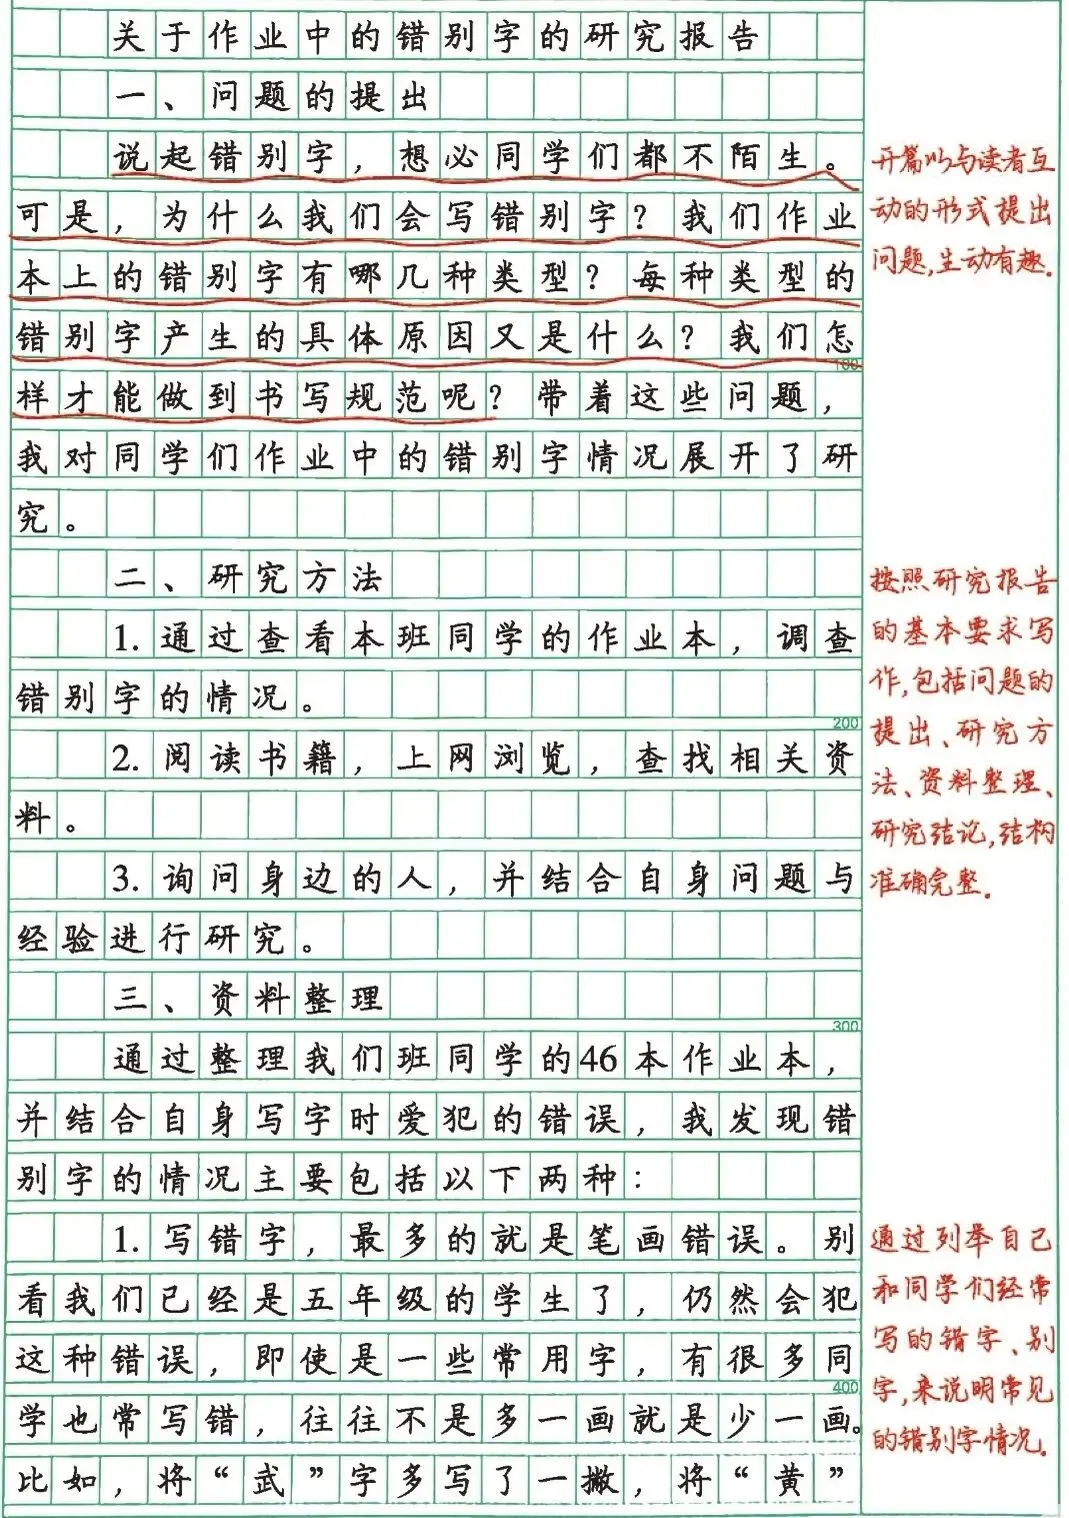 关于作业中的错别字的研究报告
一、问题的提出
说起错别字，想必同学们都不陌生。
可是，为什么我们会写错别字？我们作业
本上的错别字有哪几种类型？每种类型的
错别字产生的具体原因又是什么？我们怎
100
样才能做到书写规范呢？带着这些问题，
我对同学们作业中的错别字情况展开了研
究。
二、研究方法
1.通过查看本班同学的作业本，调查
错别字的情况。
200
2.阅读书籍，上网浏览，查找相关资
料。
3.询问身边的人，并结合自身问题与
经验进行研究。
三、资料整理
300
通过整理我们班同学的46本作业本，
并结合自身写字时爱犯的错误，我发现错
别字的情况主要包括以下两种：
1.写错字，最多的就是笔画错误。别
看我们已经是五年级的学生了，仍然会犯
这种错误，即使是一些常用字，有很多同
400
学也常写错，往往不是多一画就是少一画。
比如，将“武”字多写了一撇，将“黄”
开篇以与读者互
动的形式提出
问题,生动有趣.
按照研究报告
的基本要求写
作,包括问题的
提出、研究方
法、资料整理、
研究结论,结构
准确完整.
通过列举自己
和同学们经常
写的错字、别
字,来说明常见
的错别字情况.